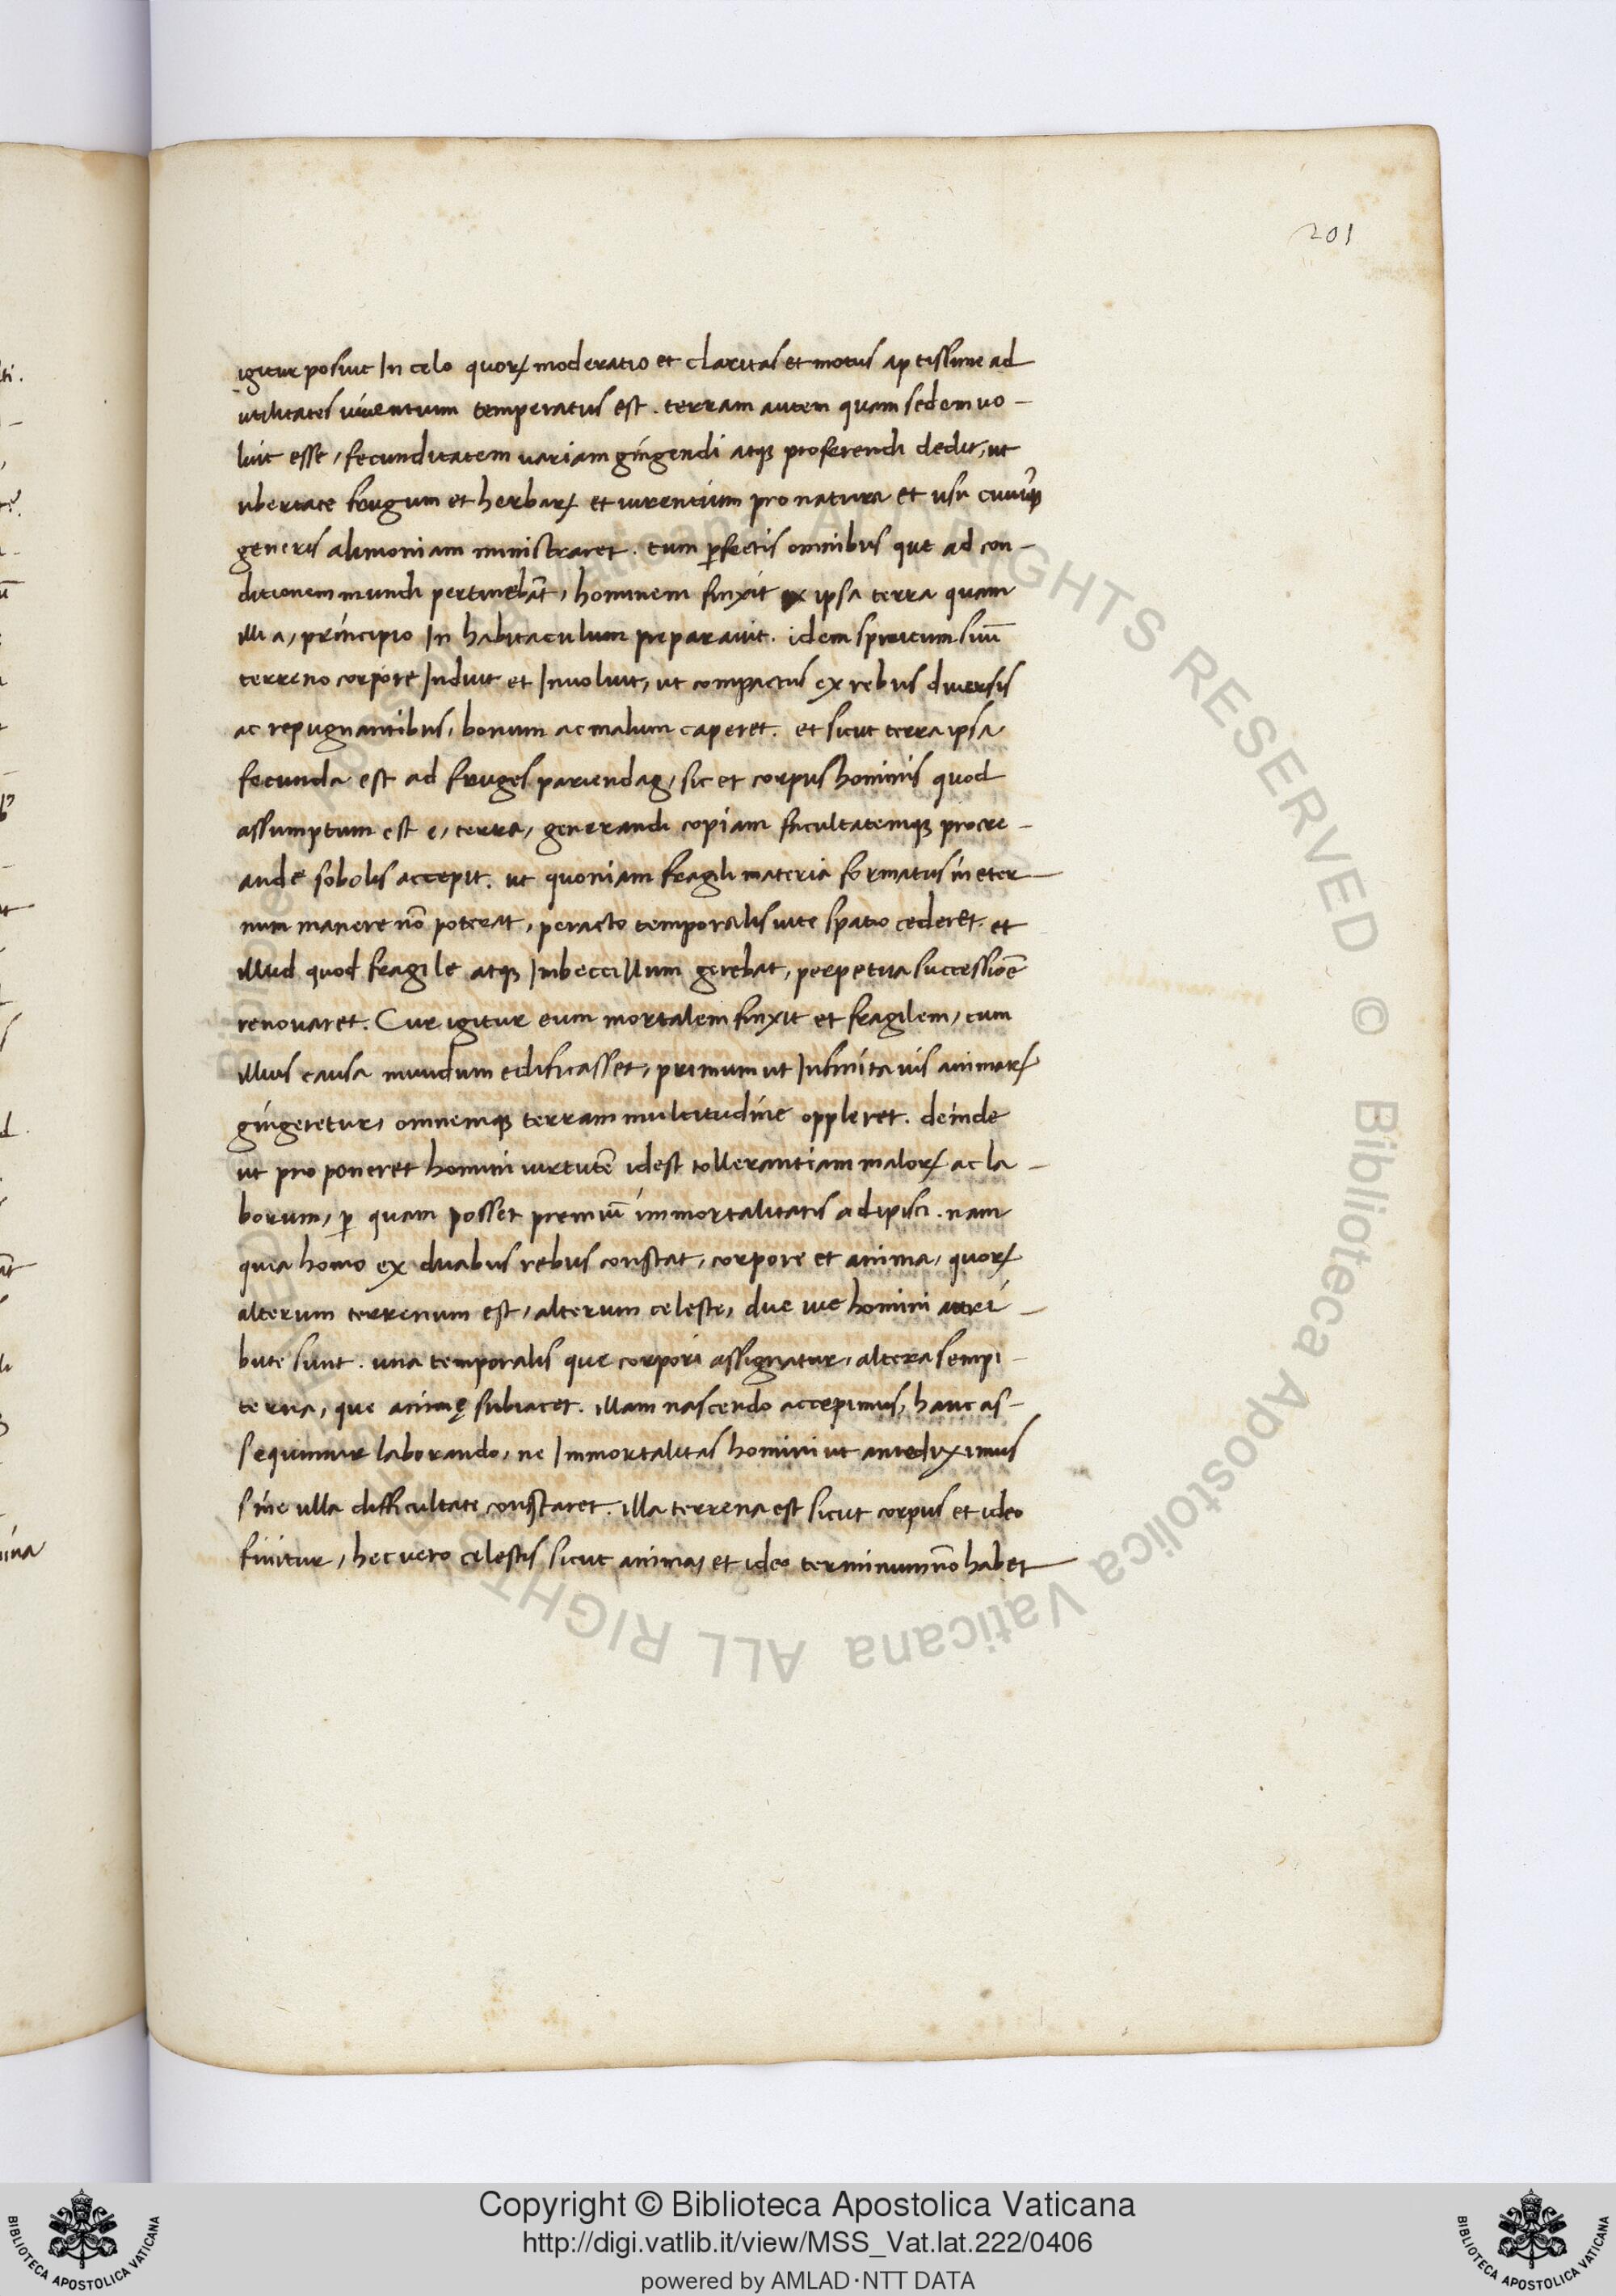 201
igitur posuit In celo quoꝝ moderatio et claritas et motus aptissime ad
utilitates viventium temperatus est . terram autem quam sedem uo –
luit esse , fecunditatem variam gingendi atqꝫ proferendi dedit , ut
ubertate frugum et herbaꝝ et virentium pro natura et usu
generis alimoniam ministraret . tum ꝑfectis omnibus que ad con –
ditionem mundi pertinebāt , hominem finxit ex ipsa terra quam
illi a , principio In habitaculum preparavit . idem spiritum suū
terreno corpore Induit et Involuit , ut compactus ex rebus diversis
ac repugnantibus , bonum ac malum caperet . et sicut terra ipsa
fecunda est ad fruges pariendas , sic et corpus hominis quod
assumptum est e , terra , generandi copiam facultatemqꝫ procre –
ande sobolis accepit . ut quoniam fragili materia formatus in eter
num manere nō poterat , peracto temporalis vite spatio cederet . et
illud quod fragile atqꝫ Imbeccillum gerebat , perpetua successiōe
renovaret . Cur igitur eum mortalem finxit et fragilem , cum
illius causa mundum edificasset , primum ut Infinita vis animaꝝ
gingeretur , omnemqꝫ terram multitudine oppleret . deinde
ut proponeret homini virtutē idest tollerantiam maloꝝ ac la –
borum , ꝑ quam posset premiū immortalitatis adipisci . nam
quia homo ex duabus rebus constat , corpore et anima , quoꝝ
alterum terrenum est , alterum celeste , due vie homini attri –
bute sunt . una temporalis que corpori assignatur , altera sempi –
terna , que animę subiacet . illam nascendo accepimus , hanc as –
sequimur laborando , ne Immortalitas homini ut antediximus
sine ulla difficultate constaret . illa terrena est sicut corpus et ideo
finitur , hec vero celestis sicut anima , et ideo terminum nō habet
Copyright © Biblioteca Apostolica Vaticana
http://digi.vatlib.it/view/MSS_Vat.lat.222/0406
powered by AMLAD·NTT DATA